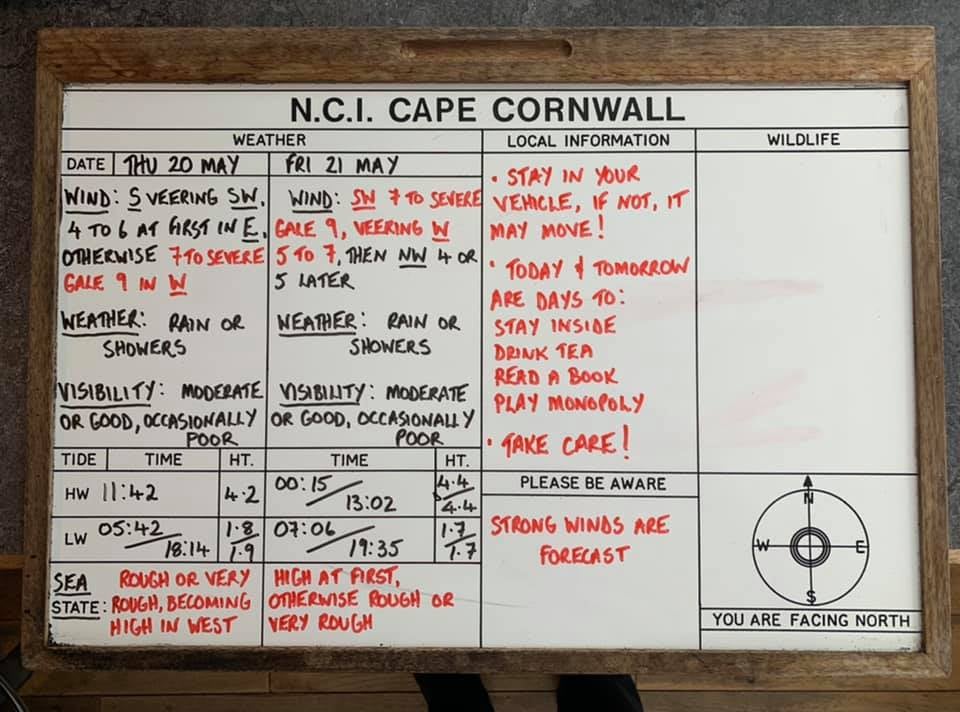 N.C.I. CAPE CORNWALL
WEATHER
DATE THU 20 MAY FRI 21 MAY
WIND: S VEERING SW,
4 TO 6 AT FIRST IN E,
OTHERWISE 7 TO SEVERE
GALE 9 IN W
WEATHER: RAIN OR
SHOWERS
VISIBILITY: MODERATE
OR GOOD, OCCASIONALLY
POOR
WIND: SW 7 TO SEVERE
GALE 9, VEERING W
5 TO 7, THEN NW 4 OR
5 LATER
WEATHER: RAIN OR
SHOWERS
VISIBILITY: MODERATE
OR GOOD, OCCASIONALLY
POOR
TIDE TIME HT. TIME HT.
HW 11:42 4.2 00:15/13:02 4.4/4.4
LW 05:42/18:14 1.8/1.9 07:06/19:35 1.7/1.7
SEA STATE: ROUGH OR VERY
ROUGH, BECOMING
HIGH IN WEST
HIGH AT FIRST,
OTHERWISE ROUGH OR
VERY ROUGH
LOCAL INFORMATION
• STAY IN YOUR
VEHICLE, IF NOT, IT
MAY MOVE!
• TODAY & TOMORROW
ARE DAYS TO:
STAY INSIDE
DRINK TEA
READ A BOOK
PLAY MONOPOLY
• TAKE CARE!
PLEASE BE AWARE
STRONG WINDS ARE
FORECAST
WILDLIFE
N
W E
S
YOU ARE FACING NORTH